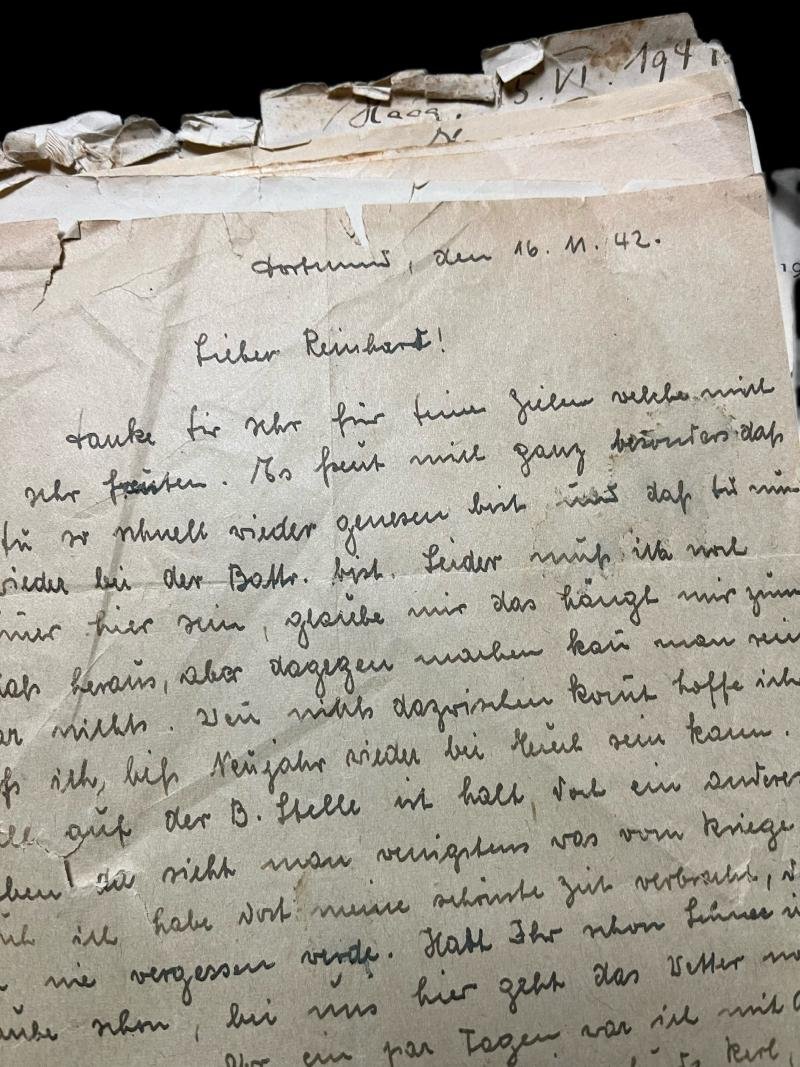 15. VI. 1941
Dortmund, den 16. 11. 42.
Lieber Reinhard!
Danke dir sehr für deine Zeilen welche mich
sehr freuten. Es freut mich ganz besonders daß
du so schnell wieder genesen bist und daß du nun
wieder bei der Battr. bist. Leider muß ich noch
hier sein, glaube mir das hängt mir zum
heraus, aber dagegen machen kan̄ man
nichts. Wen̄ nichts dazwischen kom̄t hoffe ich
ich, biß Neujahr wieder bei Euch sein kann.
auf der B. Stelle ist halt doch ein anderes
da sieht man wenigstens was vom Kriege
ich habe dort meine schönste Zeit verbracht,
nie vergessen werde. Habt Ihr schon Schnee
schon, bei uns hier geht das Wetter
ein par Tagen war ich mit
Kerl,